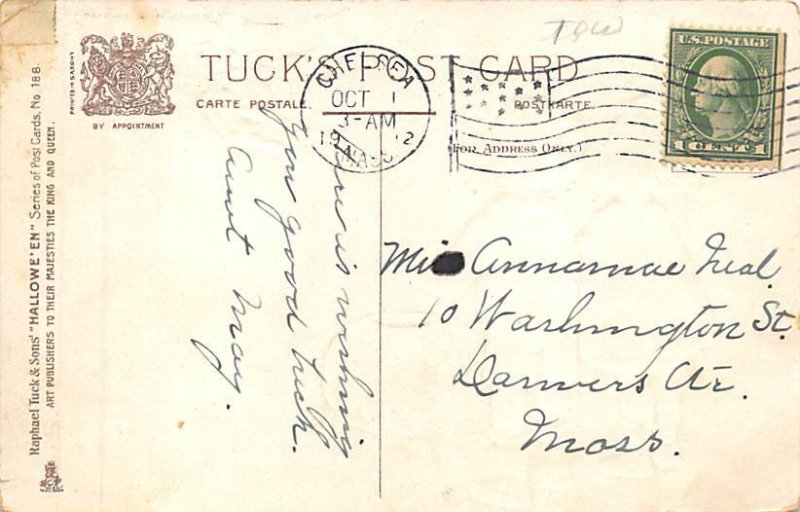 TUCK'S POST CARD
CARTE POSTALE. POSTKARTE.
(FOR ADDRESS ONLY.)
PRINTED IN SAXONY
BY APPOINTMENT
Raphael Tuck & Sons' "HALLOWE'EN" Series of Post Cards, No. 188.
ART PUBLISHERS TO THEIR MAJESTIES THE KING AND QUEEN.
CHELSEA
OCT 1
3-AM
1912
MASS
U.S. POSTAGE
1 CENT 1
is wishing
you good luck.
Aunt May.
Miss Annamae Neal.
10 Washington St.
Danvers Ctr.
Mass.